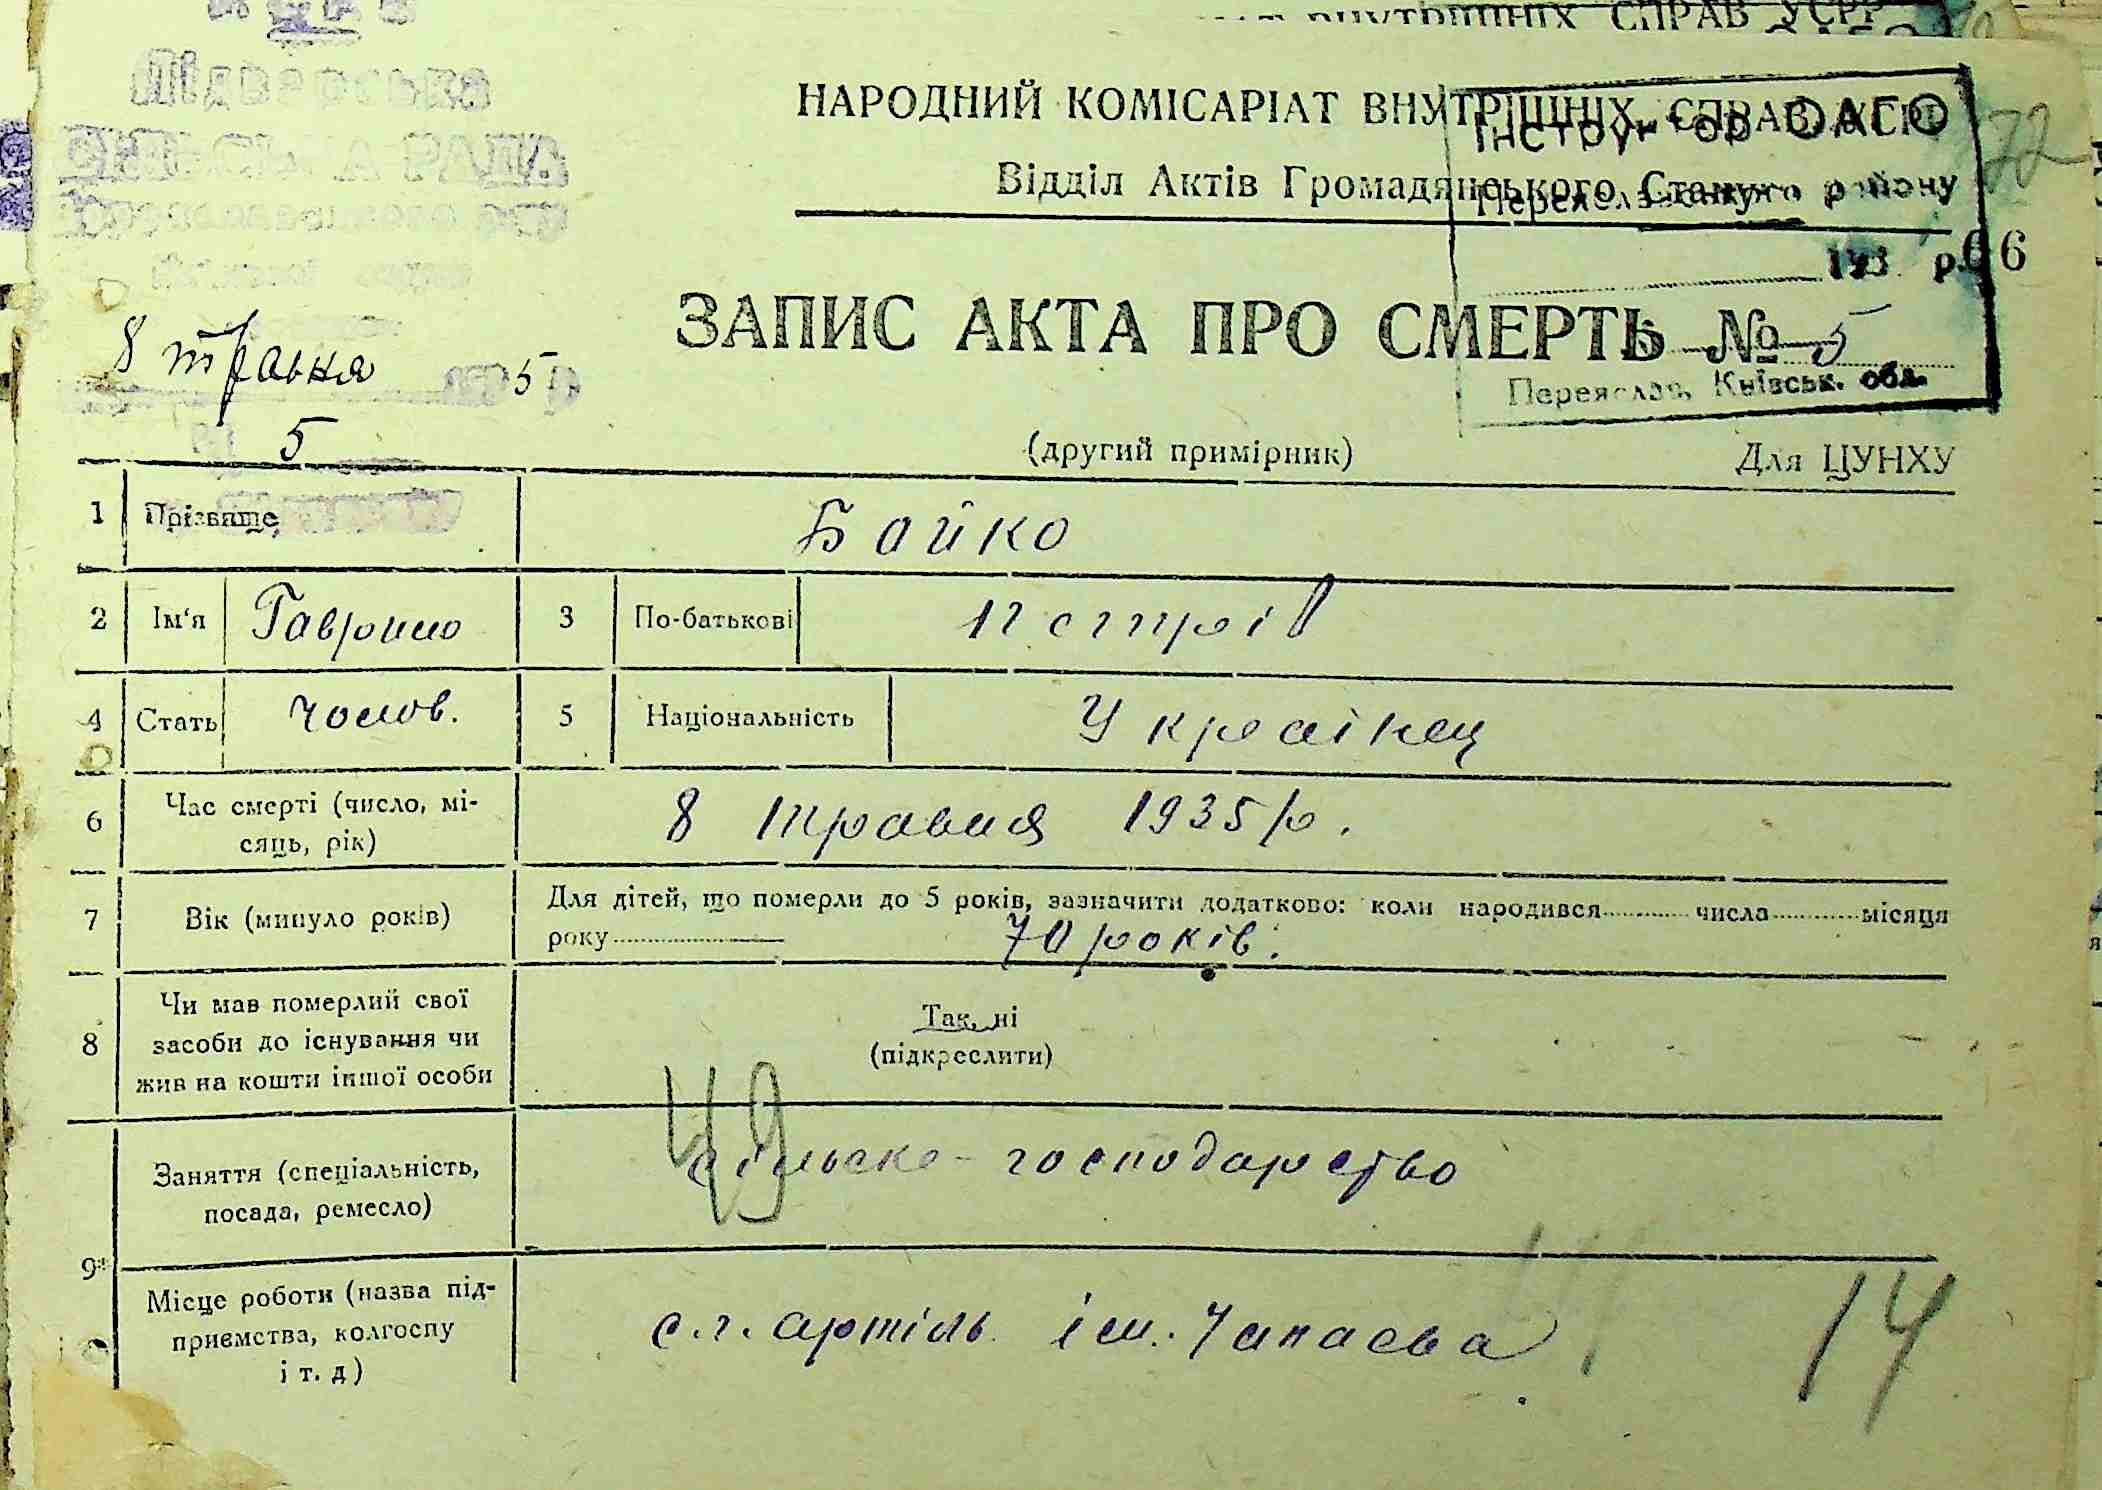 ВНУТРІШНІХ СПРАВ УСРР
Підварська
СІЛЬСЬКА РАДА
НАРОДНИЙ КОМІСАРІАТ ВНУТРІШНІХ СПРАВ УСРР
Відділ Актів Громадянського Стану
Інструктор ОАГС
Переяславського району
72
193 р.
66
8 травня 5
5
ЗАПИС АКТА ПРО СМЕРТЬ № 5
Переяслав, Київськ. обл.
(другий примірник)
Для ЦУНХУ
1 Прізвище Бойко
2 Ім'я Гаврило 3 По-батькові Петрів
4 Стать чолов. 5 Національність Українец
6 Час смерті (число, мі-
сяць, рік) 8 травня 1935 р.
7 Вік (минуло років) Для дітей, що померли до 5 років, зазначити додатково: коли народився числа місяця
року 70 років.
8 Чи мав померлий свої
засоби до існування чи
жив на кошти іншої особи
Так, ні
(підкреслити)
49
9 Заняття (спеціальність,
посада, ремесло) сільско-господарство
Місце роботи (назва під-
приємства, колгоспу
і т. д) с.г. артіль ім. Чапаєва
14